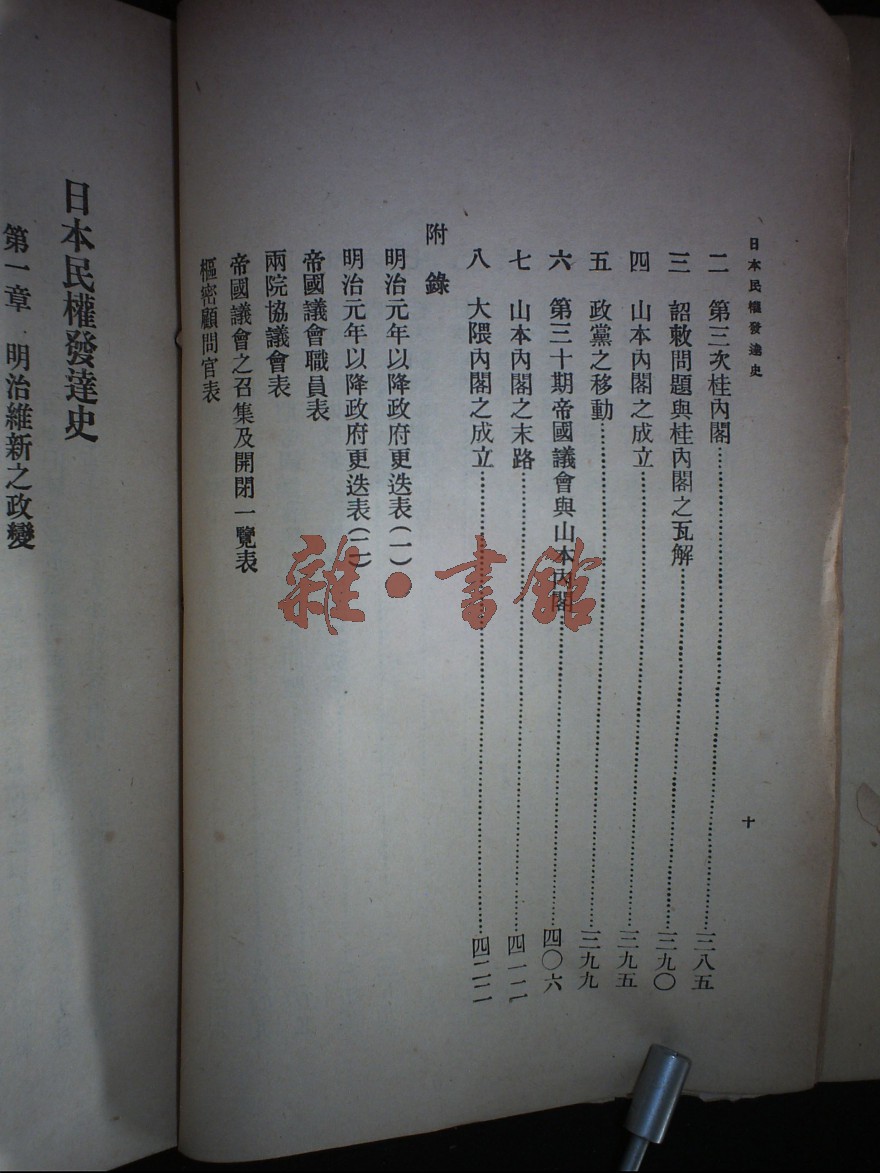 日本民權發達史
十
二 第三次桂內閣……三八五
三 詔敕問題與桂內閣之瓦解……三九〇
四 山本內閣之成立……三九五
五 政黨之移動……三九九
六 第三十期帝國議會與山本內閣……四〇六
七 山本內閣之末路……四一二
八 大隈內閣之成立……四二二
附錄
明治元年以降政府更迭表(一)
明治元年以降政府更迭表(二)
帝國議會職員表
兩院協議會表
帝國議會之召集及開閉一覽表
樞密顧問官表
日本民權發達史
第一章 明治維新之政變
雜·書館